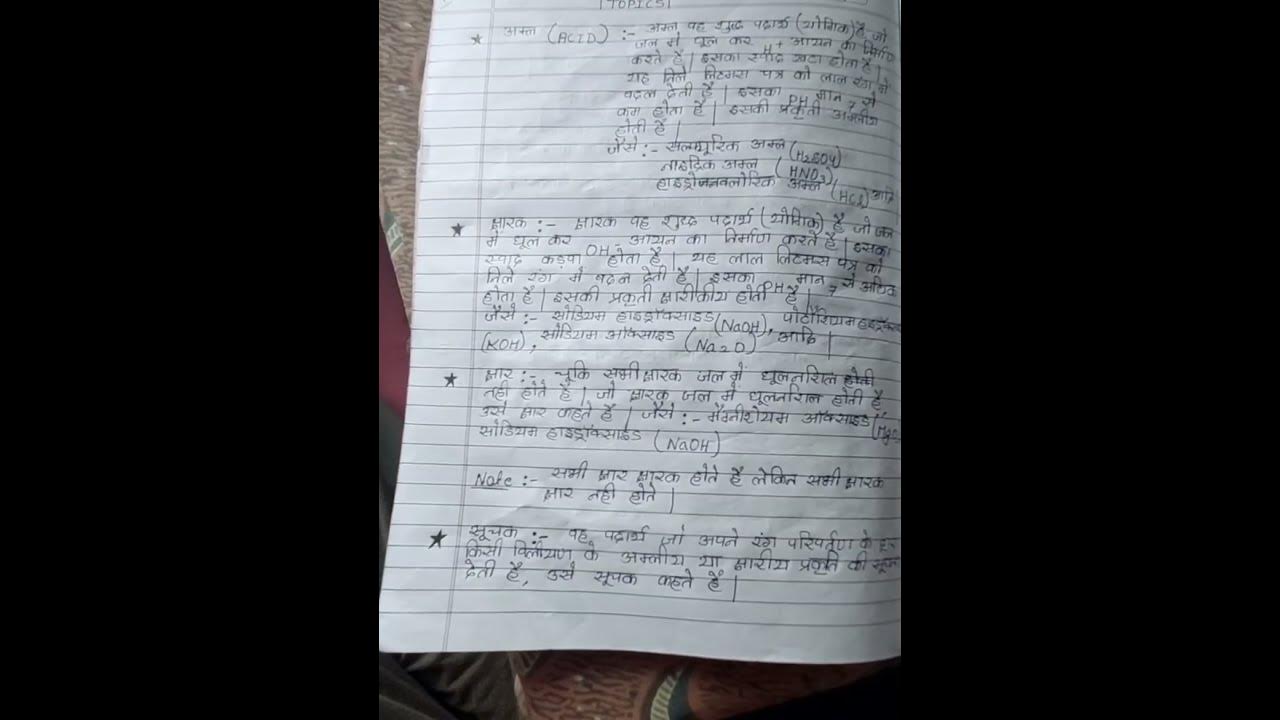 [TOPICS]
★ अम्ल (ACID) :- अम्ल वह शुद्ध पदार्थ (यौगिक) है जो
जल में घूल कर H+ आयन का निर्माण
करते हैं | इसका स्वाद खटा होता है |
यह निले लिटमस पत्र को लाल रंग में
बदल देती है | इसका PH मान 7 से
कम होता है | इसकी प्रकृती अम्लीय
होती है |
जैसे :- सल्फ्यूरिक अम्ल (H2SO4)
नाइट्रिक अम्ल (HNO3)
हाइड्रोजनक्लोरिक अम्ल (HCl) आदि
★ क्षारक :- क्षारक वह शुद्ध पदार्थ (यौगिक) है जो जल
में घूल कर OH- आयन का निर्माण करते है | इसका
स्वाद कड़वा होता है | यह लाल लिटमस पत्र को
निले रंग में बदल देती है | इसका PH मान 7 से अधिक
होता है | इसकी प्रकृती क्षारीकीय होती है |
जैसे :- सोडियम हाइड्रॉक्साइड (NaOH), पोटैशियम
(KOH), सोडियम ऑक्साइड (Na2O) आदि |
★ क्षार :- चूकि सभी क्षारक जल में घूलनशिल होती
नही होते है | जो क्षारक जल में घूलनशिल होती है
उसे क्षार कहते है | जैसे :- मैग्नीशियम ऑक्साइड
सोडियम हाइड्रॉक्साइड (NaOH)
Note :- सभी क्षार क्षारक होते है लेकिन सभी क्षारक
क्षार नही होते |
★ सूचक :- वह पदार्थ जो अपने रंग परिवर्तण के
किसी विलीयण के अम्लीय या क्षारीय प्रकृति की
देती है, उसे सूचक कहते है |